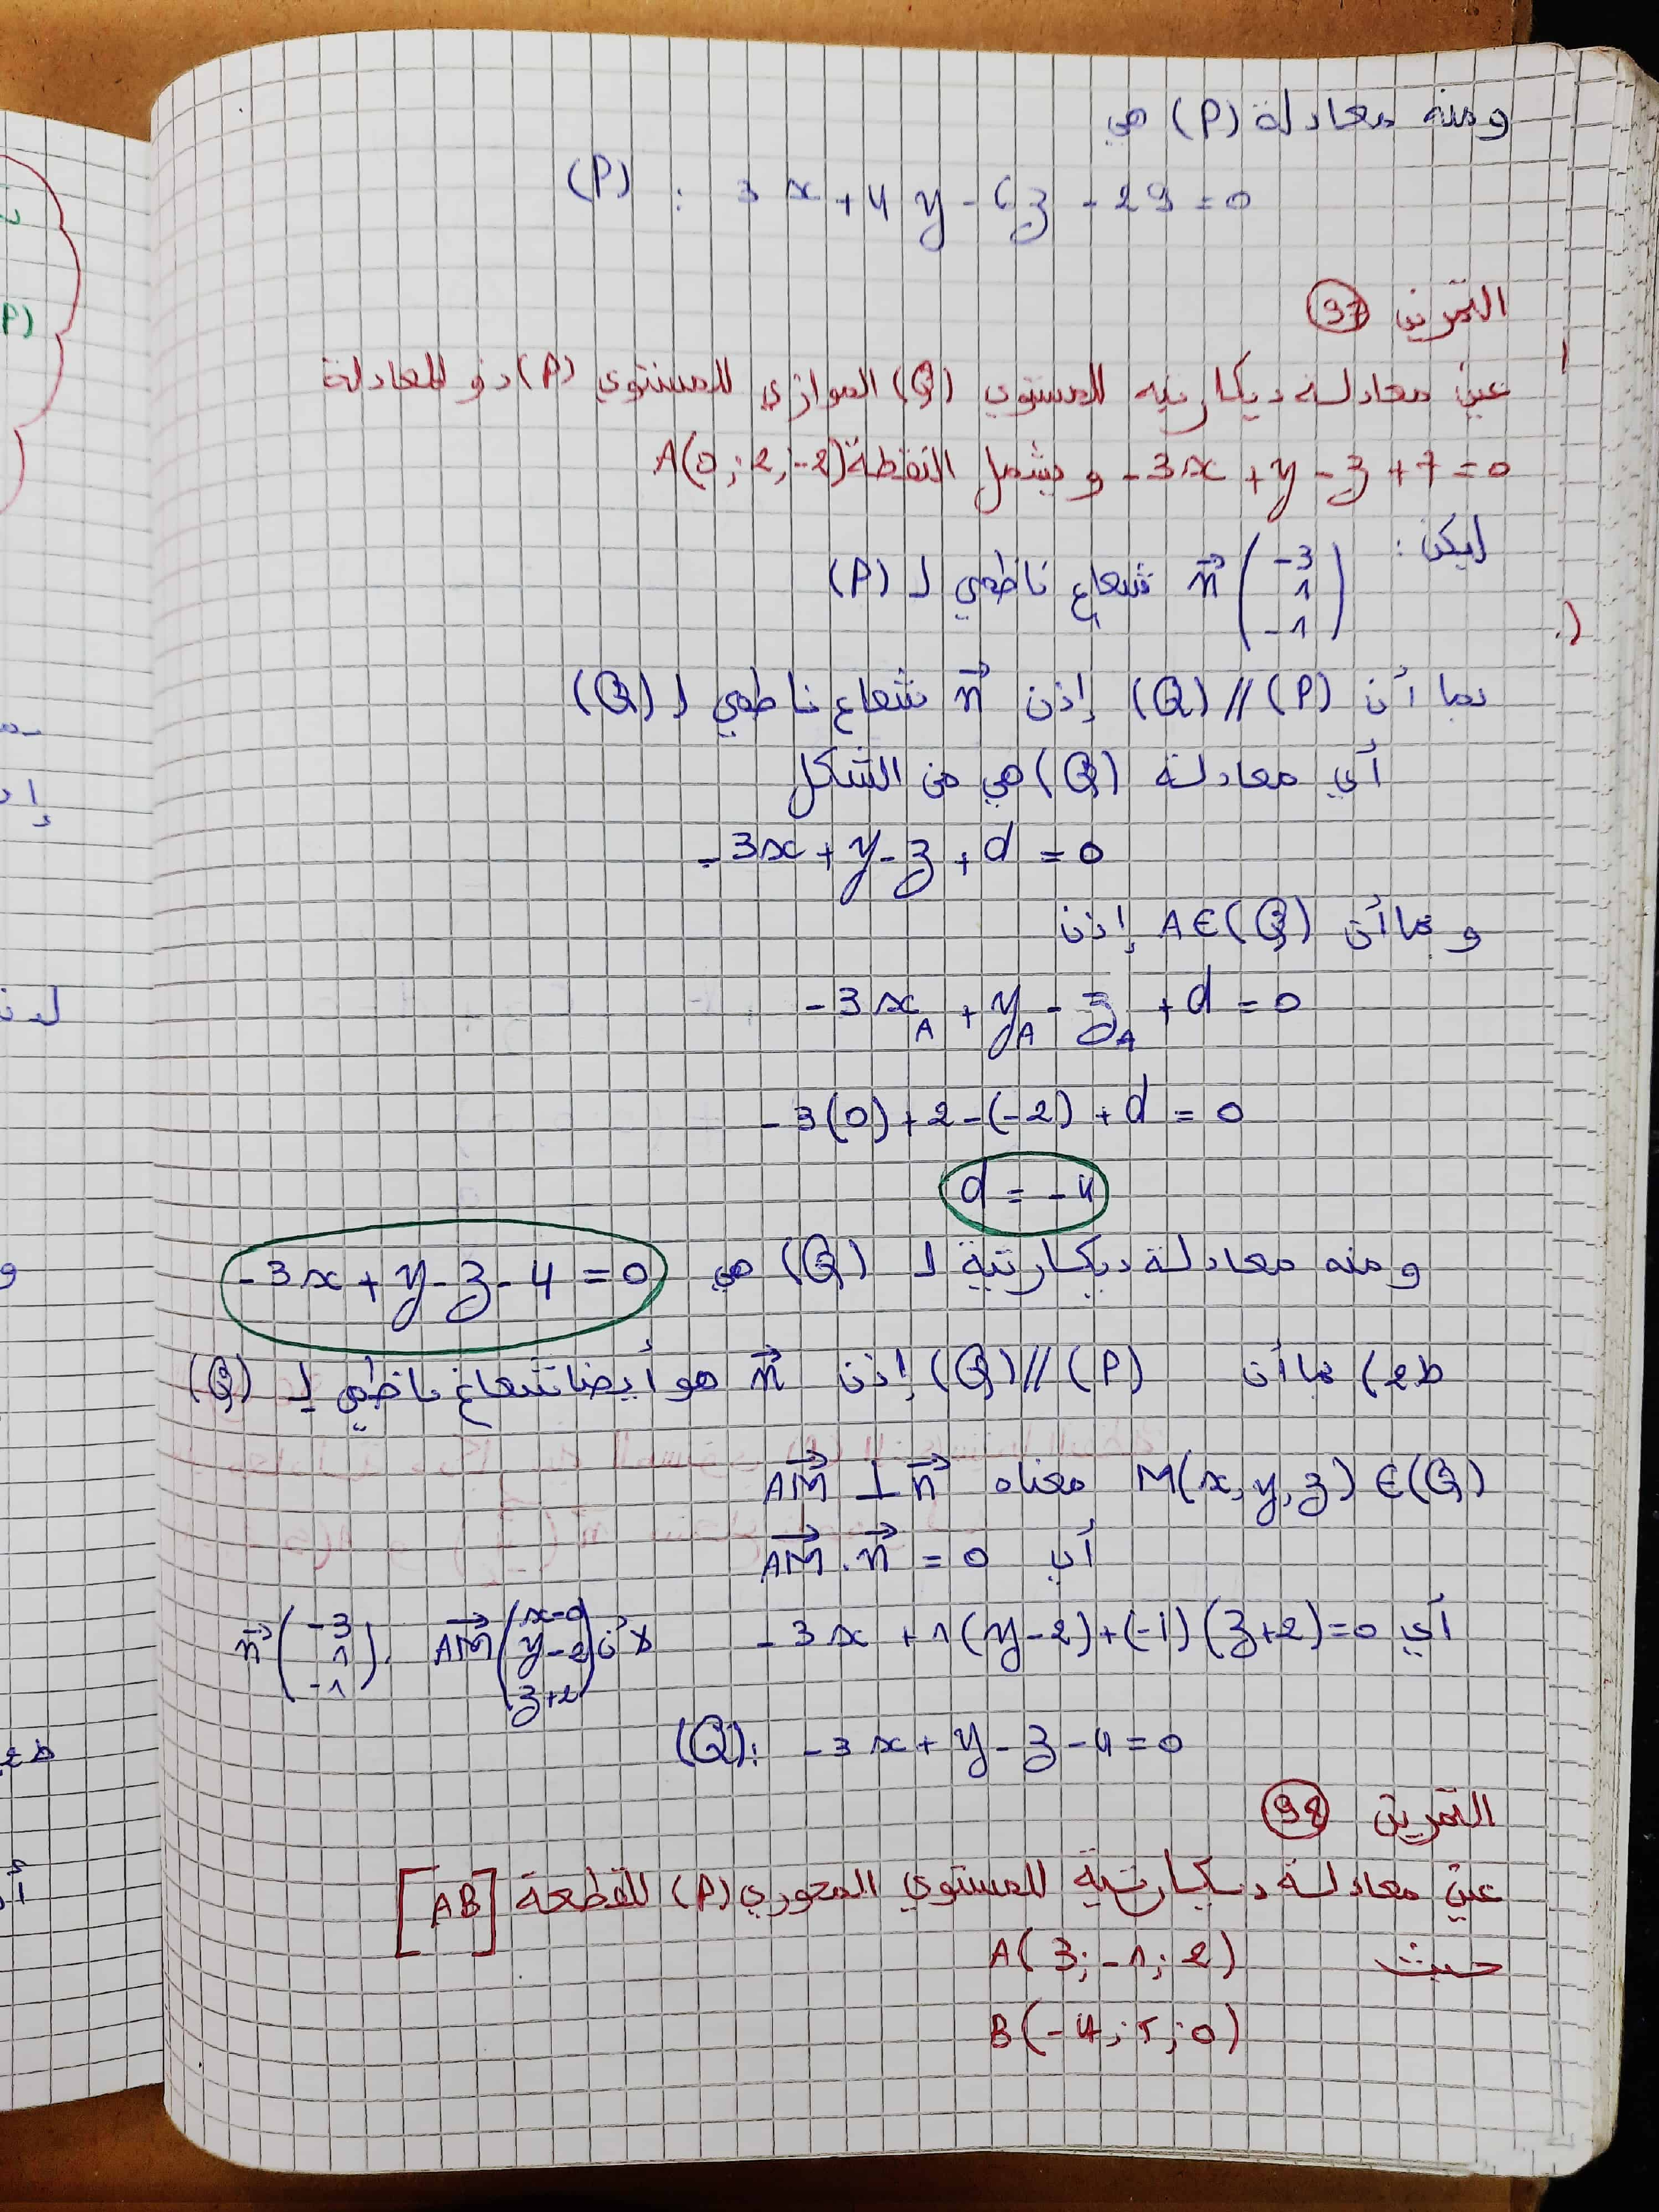 ومنه معادلة (P) هي
(P) : 3x + 4y - 6z - 29 = 0
التمرين 97
عين معادلة ديكارتية للمستوي (Q) الموازي للمستوي (P) ذو المعادلة
-3x + y - z + 7 = 0 و يشمل النقطة A(0; 2; -2)
ليكن: n⃗ (-3 1 -1) شعاع ناظمي لـ (P)
بما أن (P) // (Q) إذن n⃗ شعاع ناظمي لـ (Q)
أي معادلة (Q) هي من الشكل
-3x + y - z + d = 0
و بما أن A∈(Q) إذن
-3x_A + y_A - z_A + d = 0
-3(0) + 2 - (-2) + d = 0
d = -4
ومنه معادلة ديكارتية لـ (Q) هي -3x + y - z - 4 = 0
ط2) بما أن (P) // (Q) إذن n⃗ هو أيضا شعاع ناظمي لـ (Q)
M(x, y, z) ∈ (Q) معناه AM⃗ ⊥ n⃗
أي AM⃗ . n⃗ = 0
أي -3x + 1(y-2) + (-1)(z+2) = 0 لأن AM⃗ (x-0 y-2 z+2) , n⃗ (-3 1 -1)
(Q): -3x + y - z - 4 = 0
التمرين 98
عين معادلة ديكارتية للمستوي المحوري (P) للقطعة [AB]
حيث A(3; -1; 2)
B(-4; 5; 0)